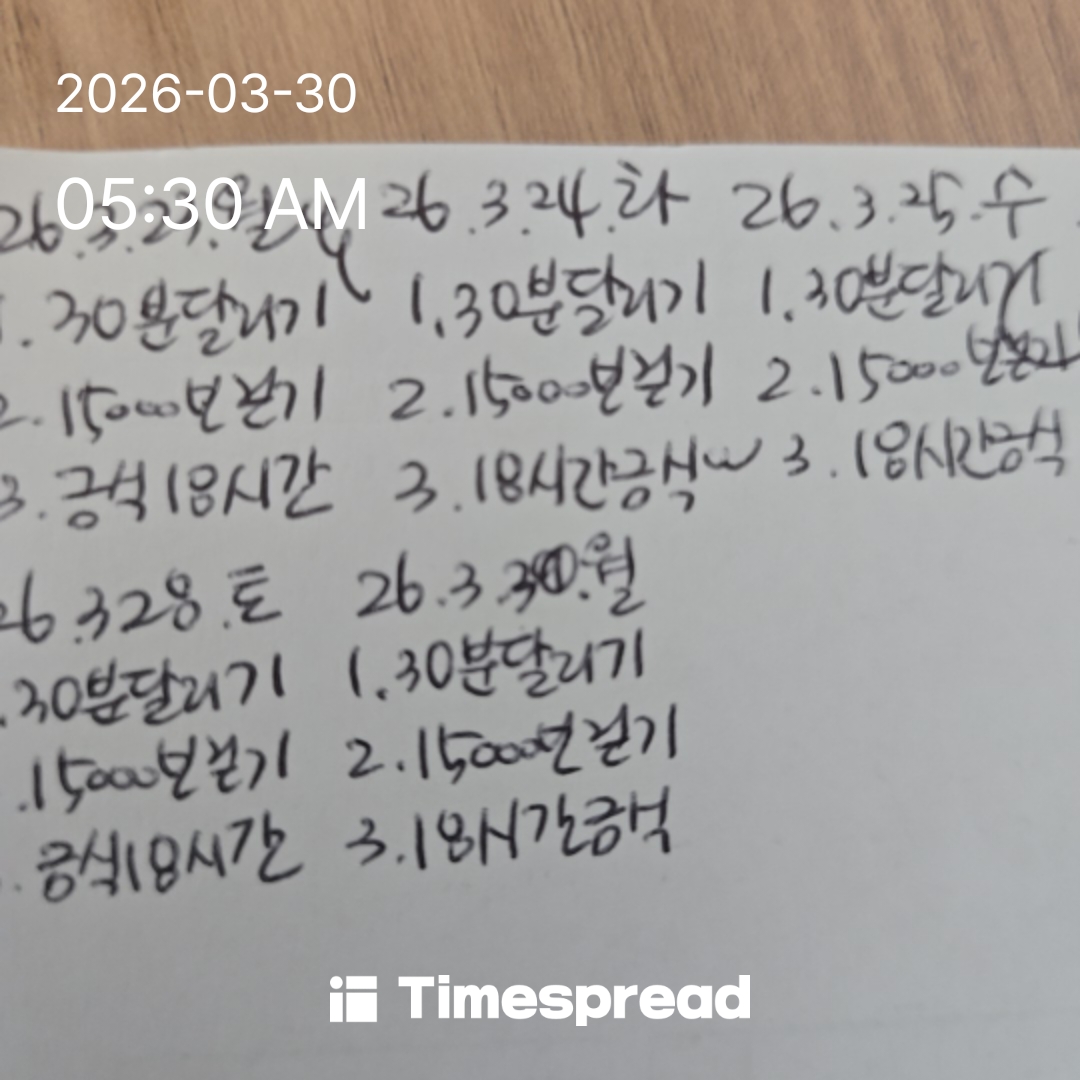 2026-03-30
05:30 AM
26.3.23.월 26.3.24.화 26.3.25.수
1.30분달리기 1.30분달리기 1.30분달리기
2.15000보걷기 2.15000보걷기 2.15000보
3.금식18시간 3.18시간금식 3.18시간금식
26.3.28.토 26.3.30.월
.30분달리기 1.30분달리기
.15000보걷기 2.15000보걷기
.금식18시간 3.18시간금식
Timespread